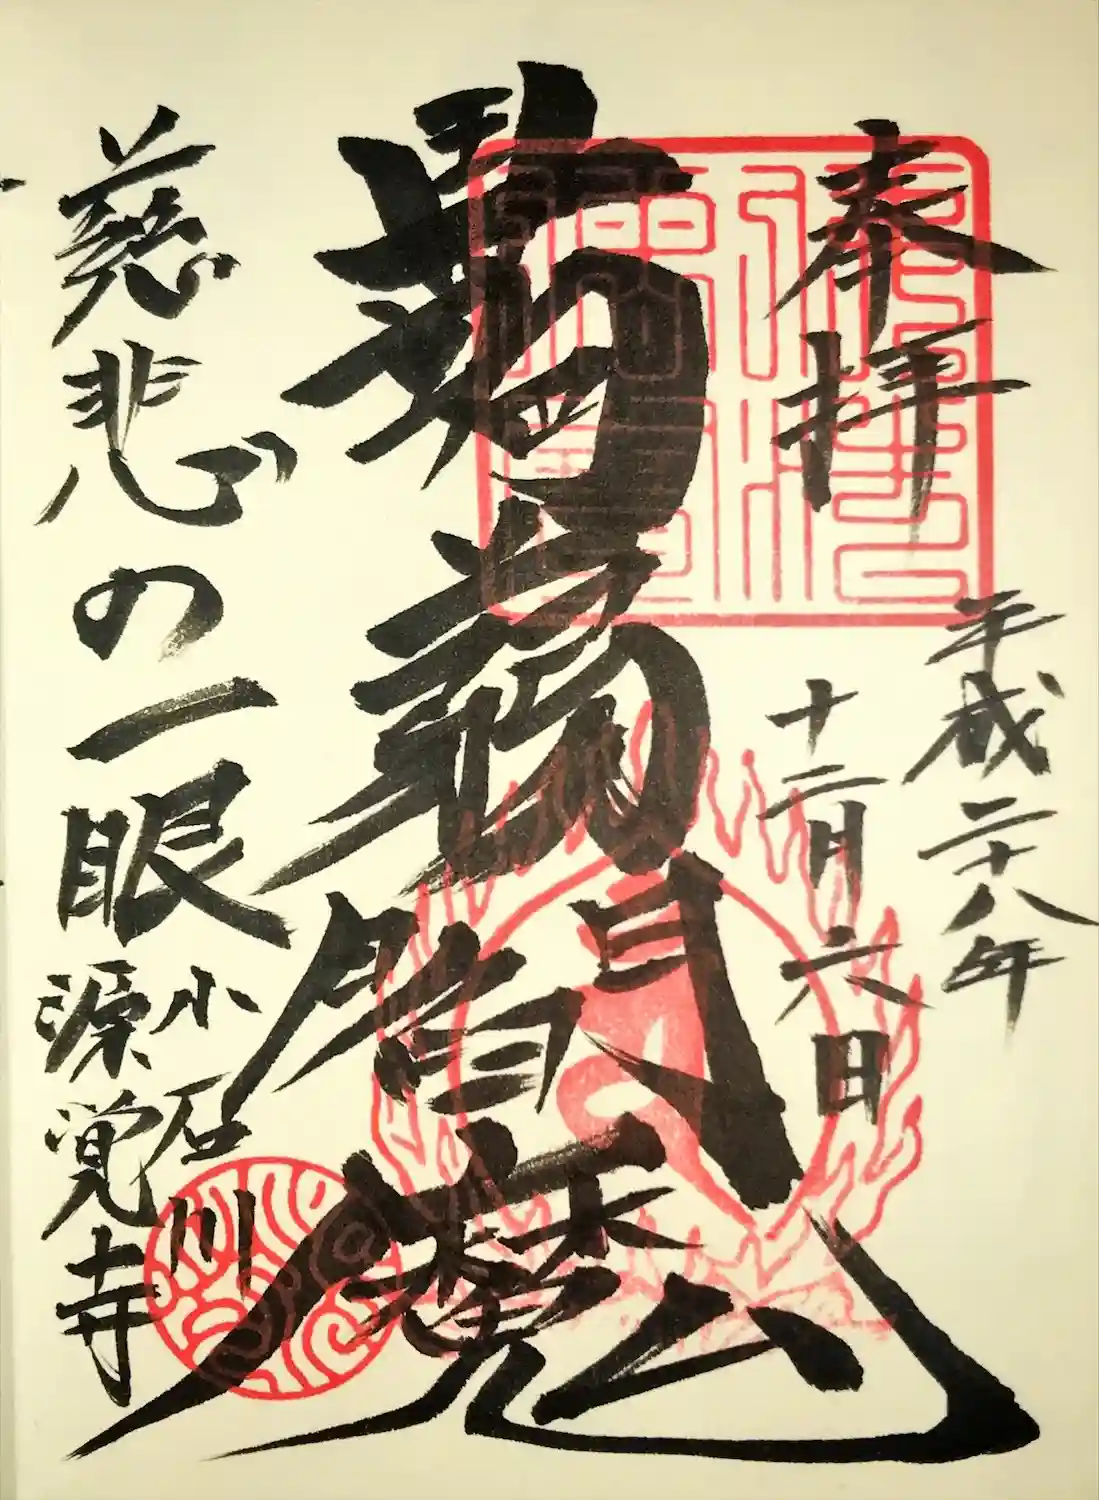 奉拝
平成二十八年
十二月六日
蒟蒻閻魔
慈悲の一眼
小石川
源覚寺
佛法僧寶